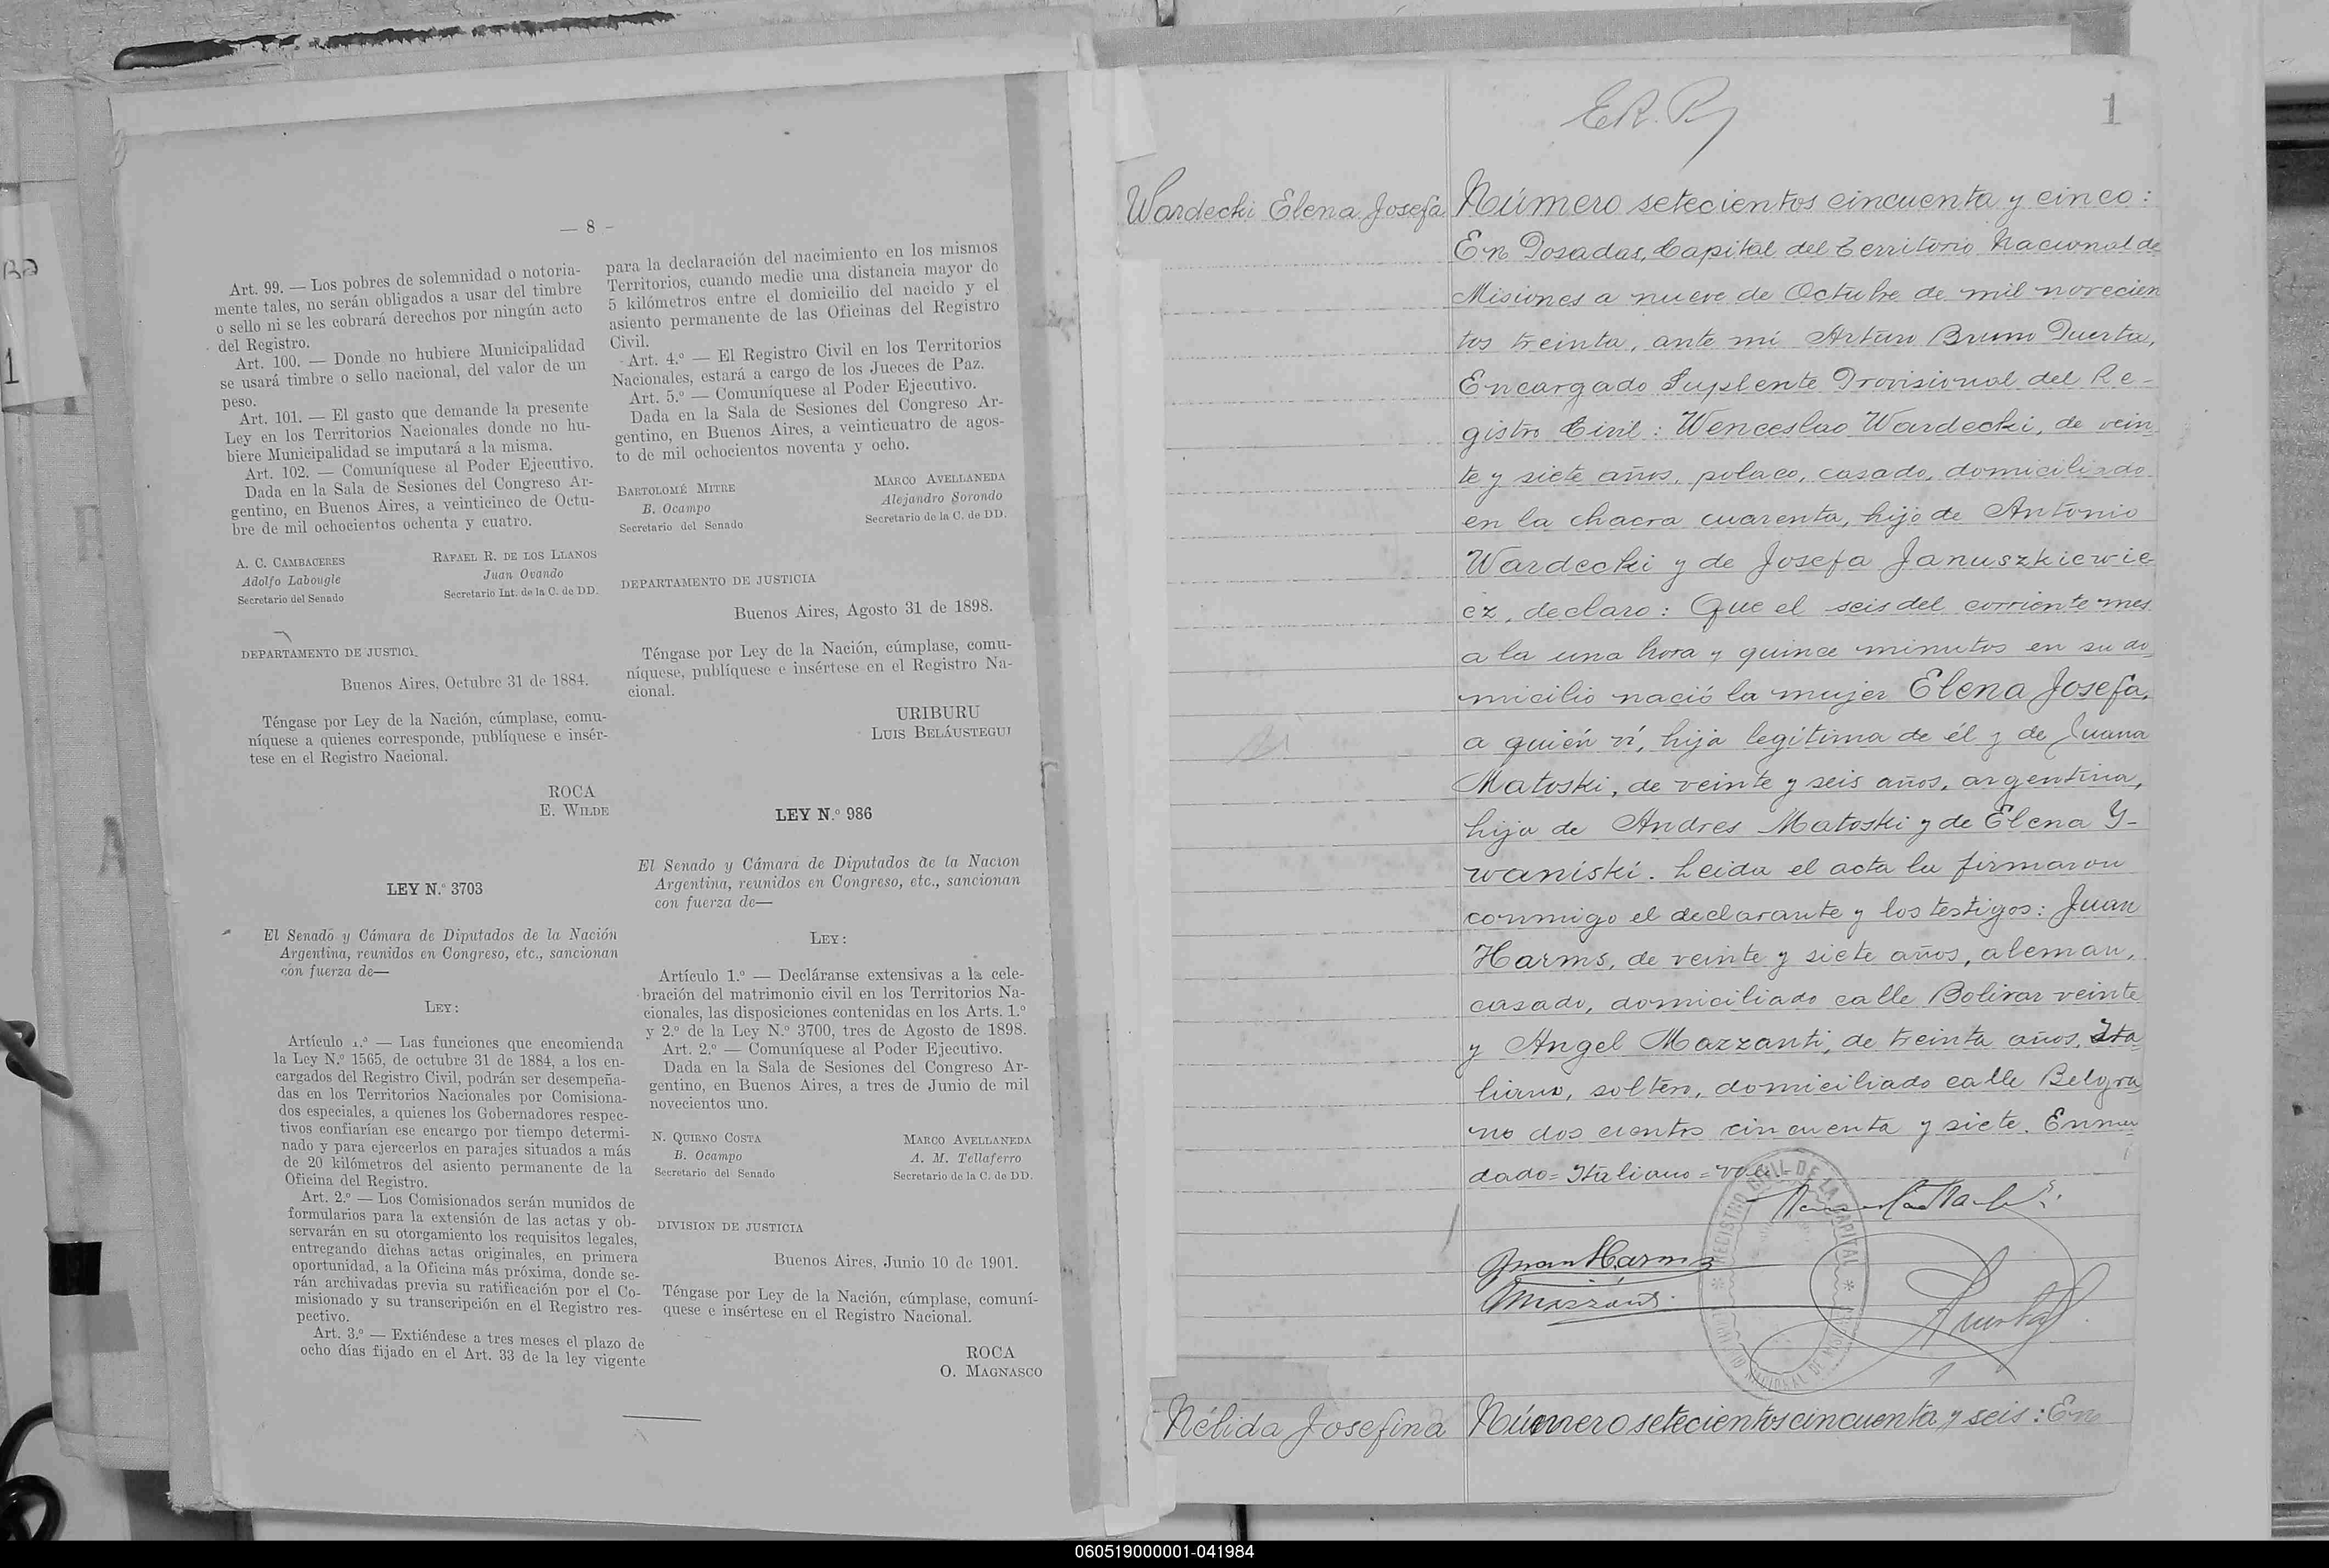 — 8 —
Art. 99. — Los pobres de solemnidad o notoria-
mente tales, no serán obligados a usar del timbre
o sello ni se les cobrará derechos por ningún acto
del Registro.
Art. 100. — Donde no hubiere Municipalidad
se usará timbre o sello nacional, del valor de un
peso.
Art. 101. — El gasto que demande la presente
Ley en los Territorios Nacionales donde no hu-
biere Municipalidad se imputará a la misma.
Art. 102. — Comuníquese al Poder Ejecutivo.
Dada en la Sala de Sesiones del Congreso Ar-
gentino, en Buenos Aires, a veinticinco de Octu-
bre de mil ochocientos ochenta y cuatro.
A. C. CAMBACERES
Adolfo Labougle
Secretario del Senado
RAFAEL R. DE LOS LLANOS
Juan Ovando
Secretario Int. de la C. de DD.
DEPARTAMENTO DE JUSTICI
Buenos Aires, Octubre 31 de 1884.
Téngase por Ley de la Nación, cúmplase, comu-
níquese a quienes corresponde, publíquese e insér-
tese en el Registro Nacional.
ROCA
E. WILDE
LEY N.º 3703
El Senado y Cámara de Diputados de la Nación
Argentina, reunidos en Congreso, etc., sancionan
con fuerza de—
LEY:
Artículo 1.º — Las funciones que encomienda
la Ley N.º 1565, de octubre 31 de 1884, a los en-
cargados del Registro Civil, podrán ser desempeña-
das en los Territorios Nacionales por Comisiona-
dos especiales, a quienes los Gobernadores respec-
tivos confiarían ese encargo por tiempo determi-
nado y para ejercerlos en parajes situados a más
de 20 kilómetros del asiento permanente de la
Oficina del Registro.
Art. 2.º — Los Comisionados serán munidos de
formularios para la extensión de las actas y ob-
servarán en su otorgamiento los requisitos legales,
entregando dichas actas originales, en primera
oportunidad, a la Oficina más próxima, donde se-
rán archivadas previa su ratificación por el Co-
misionado y su transcripción en el Registro res-
pectivo.
Art. 3.º — Extiéndese a tres meses el plazo de
ocho días fijado en el Art. 33 de la ley vigente
para la declaración del nacimiento en los mismos
Territorios, cuando medie una distancia mayor de
5 kilómetros entre el domicilio del nacido y el
asiento permanente de las Oficinas del Registro
Civil.
Art. 4.º — El Registro Civil en los Territorios
Nacionales, estará a cargo de los Jueces de Paz.
Art. 5.º — Comuníquese al Poder Ejecutivo.
Dada en la Sala de Sesiones del Congreso Ar-
gentino, en Buenos Aires, a veinticuatro de agos-
to de mil ochocientos noventa y ocho.
BARTOLOMÉ MITRE
B. Ocampo
Secretario del Senado
MARCO AVELLANEDA
Alejandro Sorondo
Secretario de la C. de DD.
DEPARTAMENTO DE JUSTICIA
Buenos Aires, Agosto 31 de 1898.
Téngase por Ley de la Nación, cúmplase, comu-
níquese, publíquese e insértese en el Registro Na-
cional.
URIBURU
LUIS BELÁUSTEGUI
LEY N.º 986
El Senado y Cámara de Diputados de la Nación
Argentina, reunidos en Congreso, etc., sancionan
con fuerza de—
LEY:
Artículo 1.º — Decláranse extensivas a la cele-
bración del matrimonio civil en los Territorios Na-
cionales, las disposiciones contenidas en los Arts. 1.º
y 2.º de la Ley N.º 3700, tres de Agosto de 1898.
Art. 2.º — Comuníquese al Poder Ejecutivo.
Dada en la Sala de Sesiones del Congreso Ar-
gentino, en Buenos Aires, a tres de Junio de mil
novecientos uno.
N. QUIRNO COSTA
B. Ocampo
Secretario del Senado
MARCO AVELLANEDA
A. M. Tellaferro
Secretario de la C. de DD.
DIVISION DE JUSTICIA
Buenos Aires, Junio 10 de 1901.
Téngase por Ley de la Nación, cúmplase, comuní-
quese e insértese en el Registro Nacional.
ROCA
O. MAGNASCO
1
Wardecki Elena Josefa
Número setecientos cincuenta y cinco:
En Posadas, Capital del Territorio Nacional de
Misiones a nueve de Octubre de mil novecien
tos treinta, ante mi Arturo Bruno Puerta,
Encargado Suplente Provisional del Re-
gistro Civil: Wenceslao Wardecki, de vein
te y siete años, polaco, casado, domiciliado
en la chacra cuarenta, hijo de Antonio
Wardecki y de Josefa Januszkiewie
cz, declaro: Que el seis del corriente mes
a la una hora y quince minutos en su do
micilio nació la mujer Elena Josefa,
a quién ví, hija legítima de él y de Juana
Matoski, de veinte y seis años, argentina,
hija de Andres Matoski y de Elena Y-
waniski. Leida el acta la firmaron
conmigo el declarante y los testigos: Juan
Harms, de veinte y siete años, aleman,
casado, domiciliado calle Bolivar veinte
y Angel Mazzanti, de treinta años, Ita
liano, soltero, domiciliado calle Belgra
no dos cientos cincuenta y siete. Enmen
dado = Italiano = vale
Juan Harms
REGISTRO CIVIL DE LA CAPITAL
Nélida Josefina
Número setecientos cincuenta y seis: En
060519000001-041984